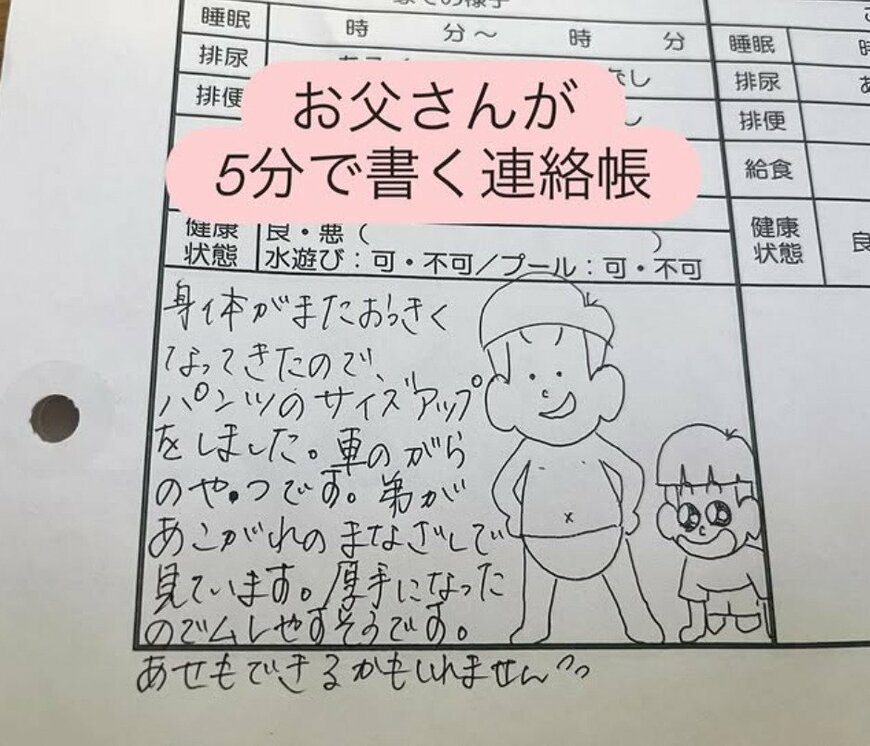 睡眠 時 分～ 時 分
排尿
排便
お父さんが
5分で書く連絡帳
健康状態 良・悪( )
水遊び：可・不可／プール：可・不可
睡眠
排尿
排便
給食
健康状態 良
身体がまたおっきく
なってきたので、
パンツのサイズアップ
をしました。車のがら
のやつです。弟が
あこがれのまなざしで
見ています。厚手になった
のでムレやすそうです。
あせもできるかもしれません